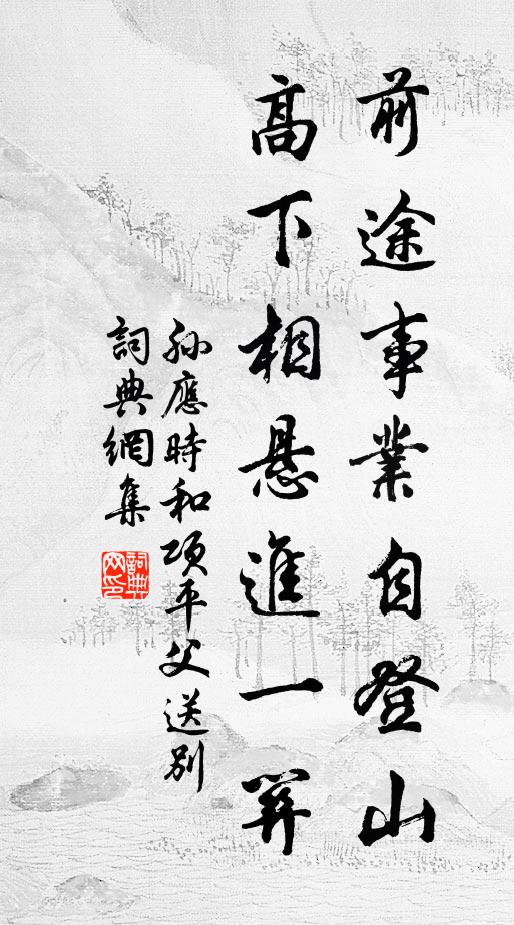 前途事業自登山
高下相悬進一關
孙應時和項平父送别
詞典網集
詞典网印